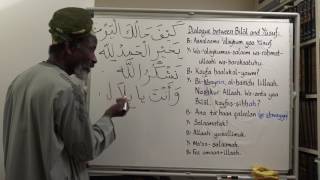 كَيْفَ حَالُكَ الْيَوْمَ
بِخَيْرٍ الْحَمْدُ لِلَّهِ
نَشْكُرُ اللَّهَ
وَأَنْتَ يَا بِلَال
Dialogue between Bilāl and Yusuf.
B: Assalaamu 'alaykum yaa Yusuf
Y: Wa-'alaykumus-salaam wa-rahmat-ullaahi wa-barakaatuhu.
B: Kayfa haalukal-yawm?
Y: Bi-khayrin, al-hamdu lillaah. Nashkur Allaah. Wa-anta yaa Bilāl, kayfas-sihhah?
B: Ana ta'baan qaleelan
Y: Salaamatak!
B: Allaah yusallimuk.
Y: Ma'as-salaamah.
B: Fee amaanillaah.